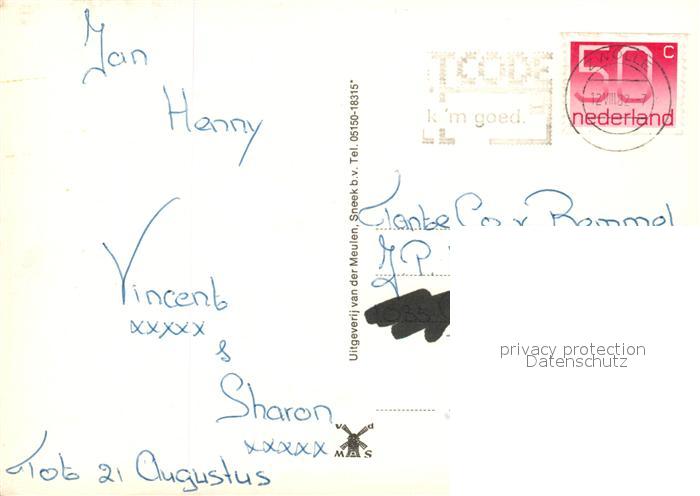 Jan
Henny
Vincent
xxxxx
&
Sharon
xxxxx
Tot 21 Augustus
Uitgeverij van der Meulen, Sneek b.v. Tel. 05150-18315*
v d
M S
TCODE
k 'm goed.
50 c
nederland
12 VIII 82-7
Tante Co v Rommel
J.P.
privacy protection
Datenschutz